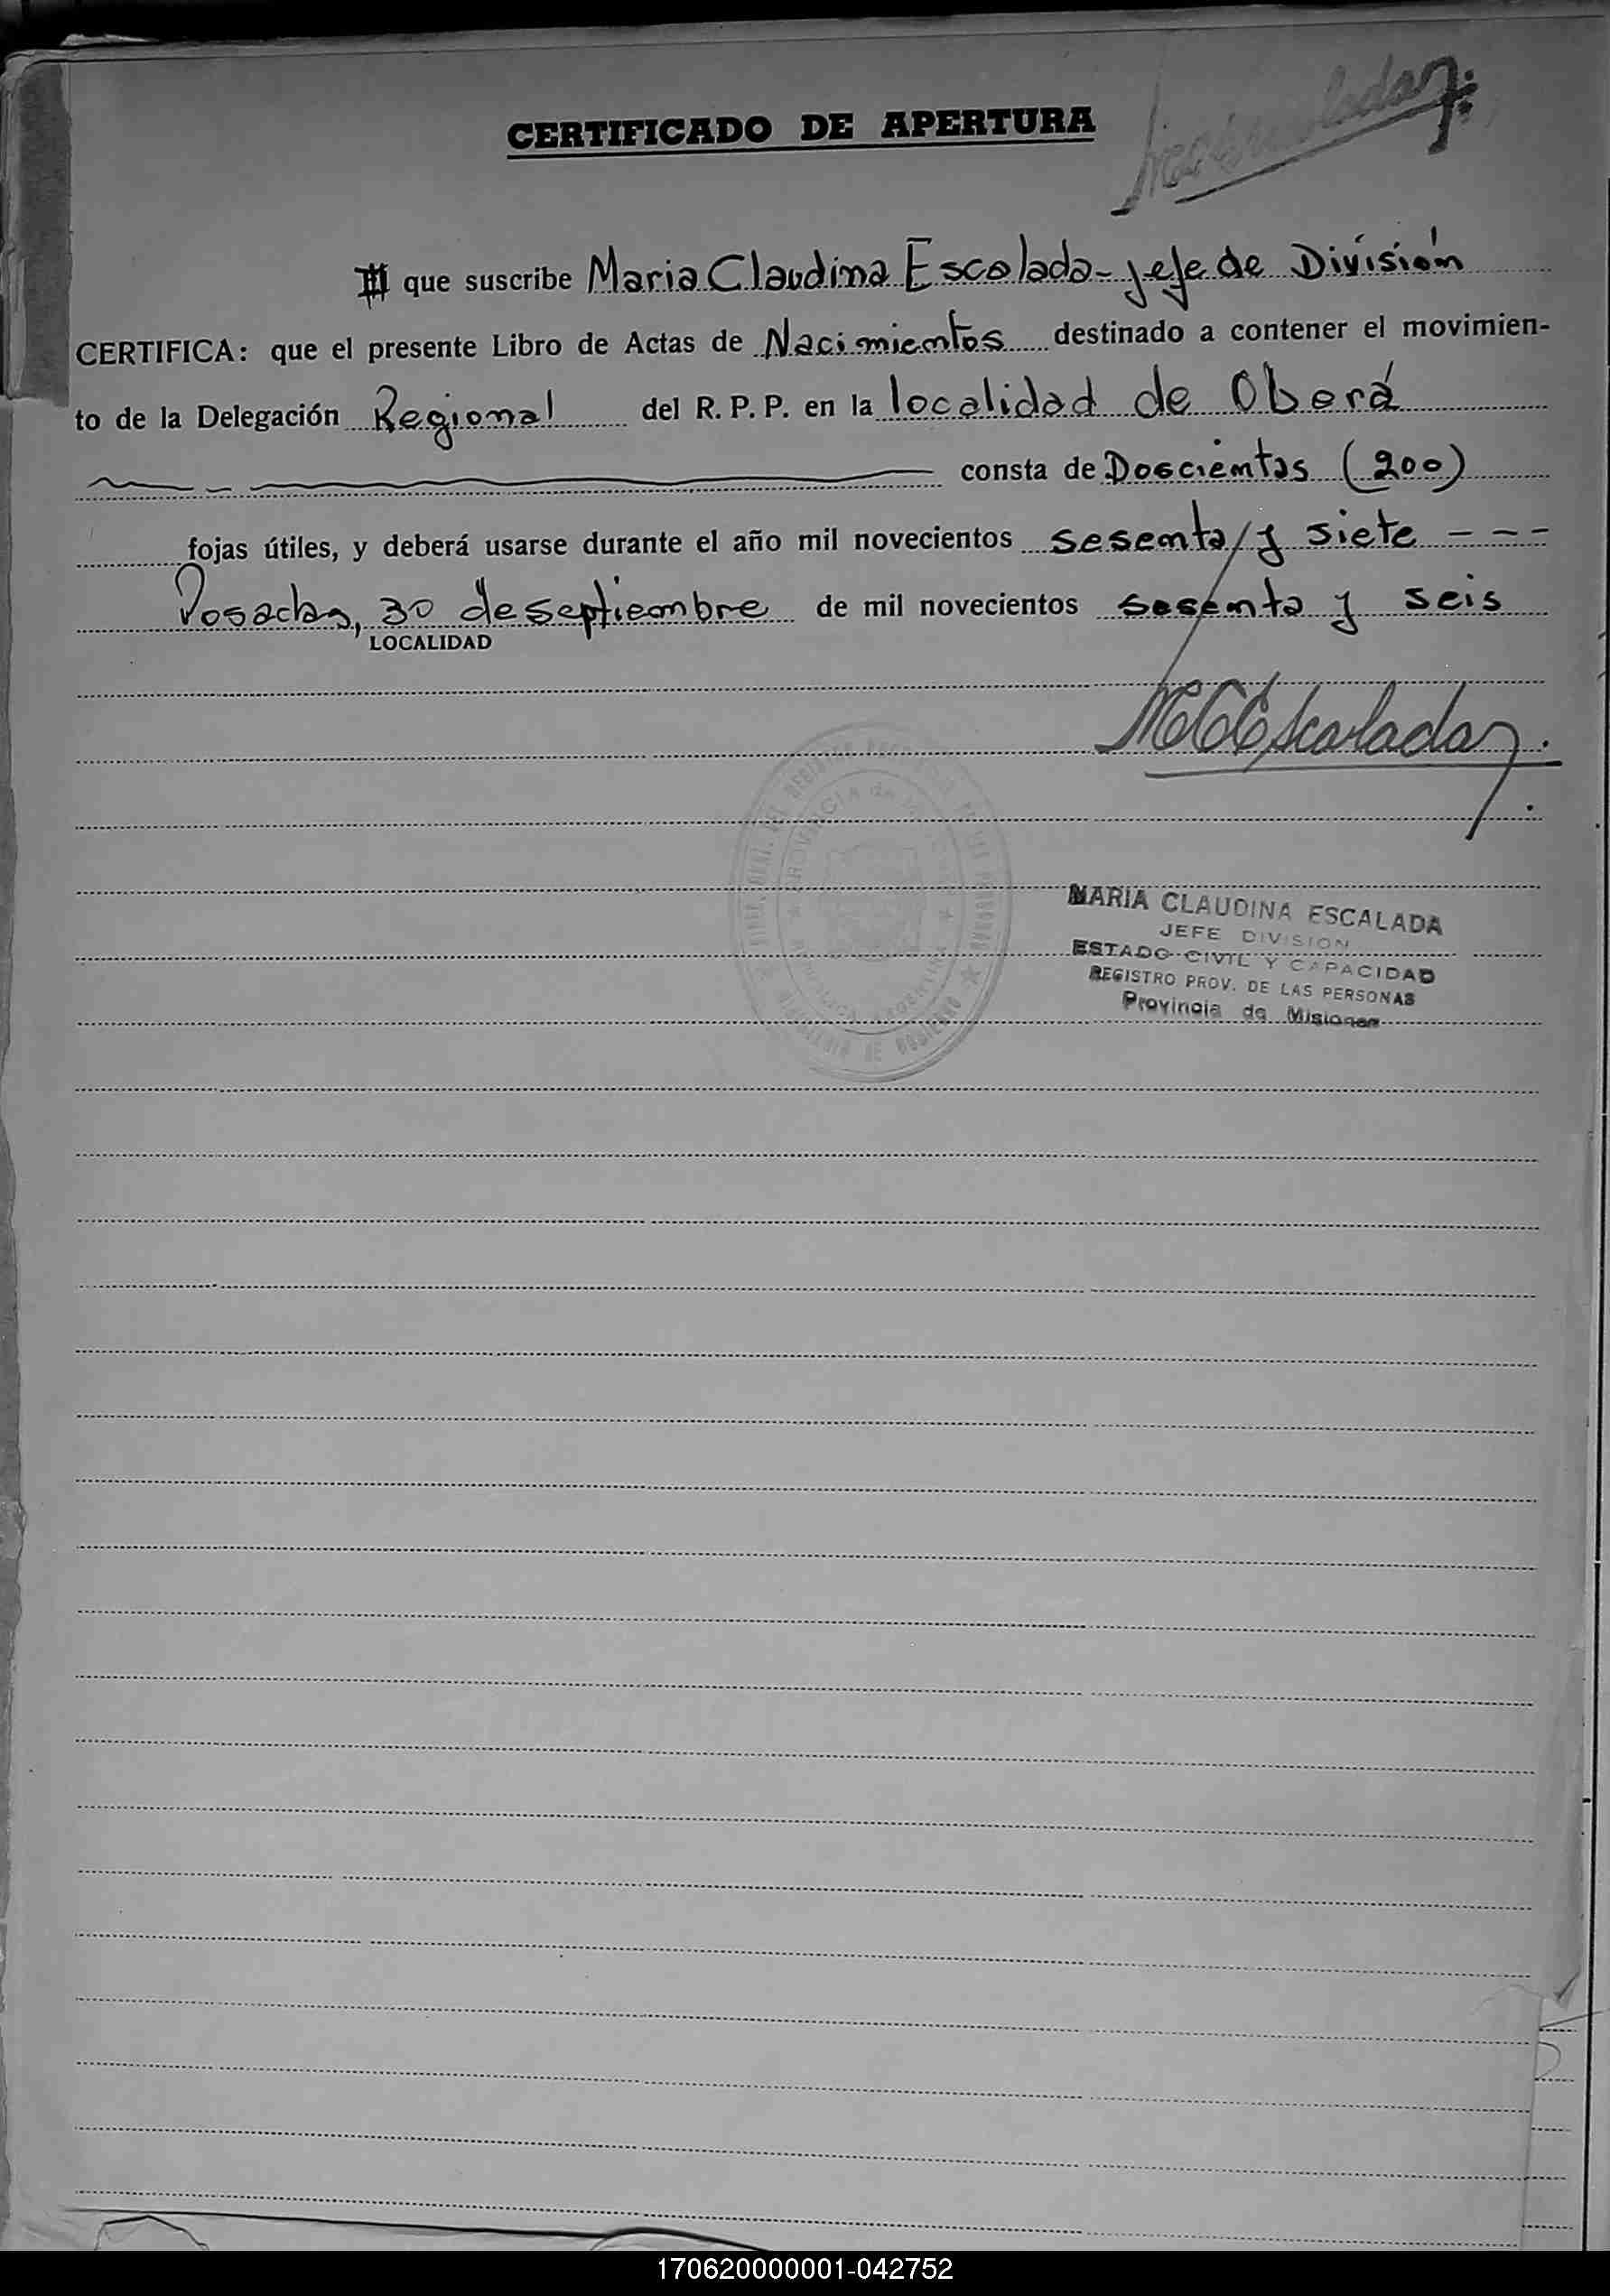 CERTIFICADO DE APERTURA
que suscribe Maria Claudina Escalada - jefe de División
CERTIFICA: que el presente Libro de Actas de Nacimientos destinado a contener el movimien-
to de la Delegación Regional del R. P. P. en la localidad de Oberá
consta de Doscientas (200)
fojas útiles, y deberá usarse durante el año mil novecientos sesenta y siete - - -
Posadas, 30 de septiembre de mil novecientos sesenta y seis
LOCALIDAD
MCEscalada
PROVINCIA de
REPUBLICA ARGENTINA
MARIA CLAUDINA ESCALADA
JEFE DIVISION
ESTADO CIVIL Y CAPACIDAD
REGISTRO PROV. DE LAS PERSONAS
Provincia de Misiones
170620000001-042752